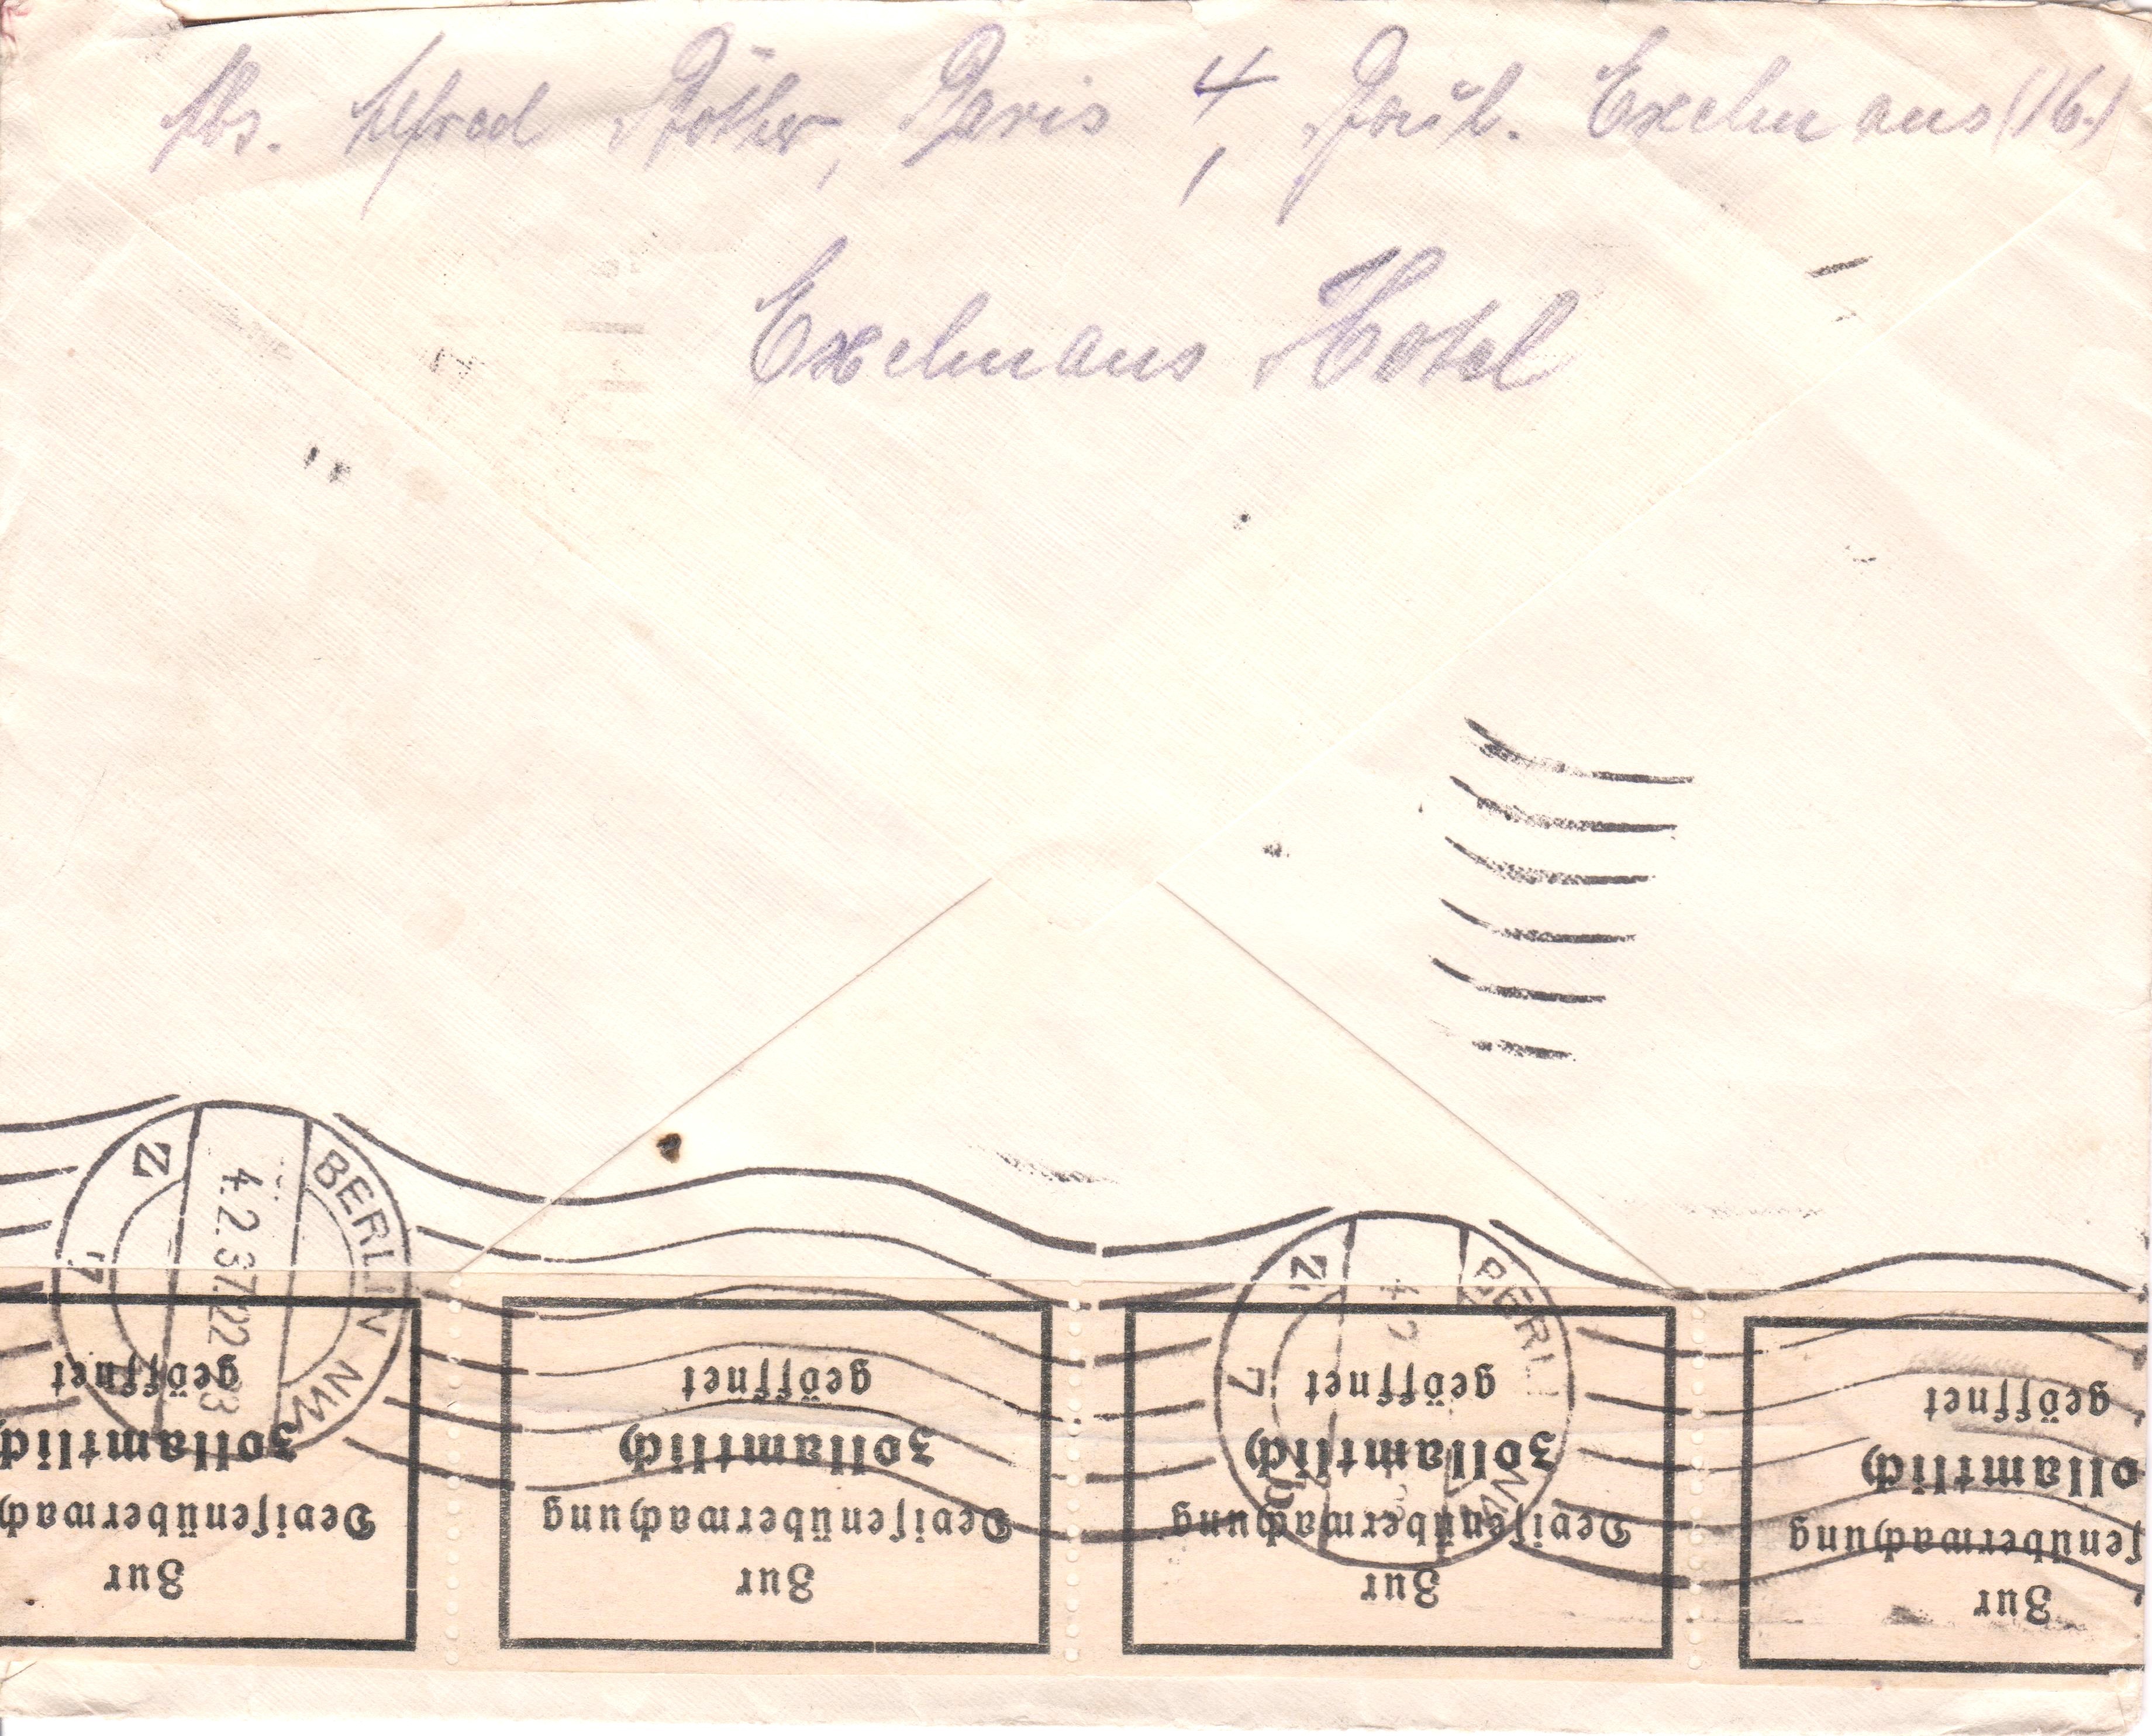 Abs. Alfred Röther, Paris 4, Boul. Exelmans (16.)
Exelmans Hotel
BERLIN NW
4.2.37.22
7
BERLIN NW
7
Zur
Devisenüberwach
zollamtlich
geöffnet
Zur
Devisenüberwachung
zollamtlich
geöffnet
Zur
Devisenüberwachung
zollamtlich
geöffnet
Zur
senüberwachung
ollamtlich
geöffnet